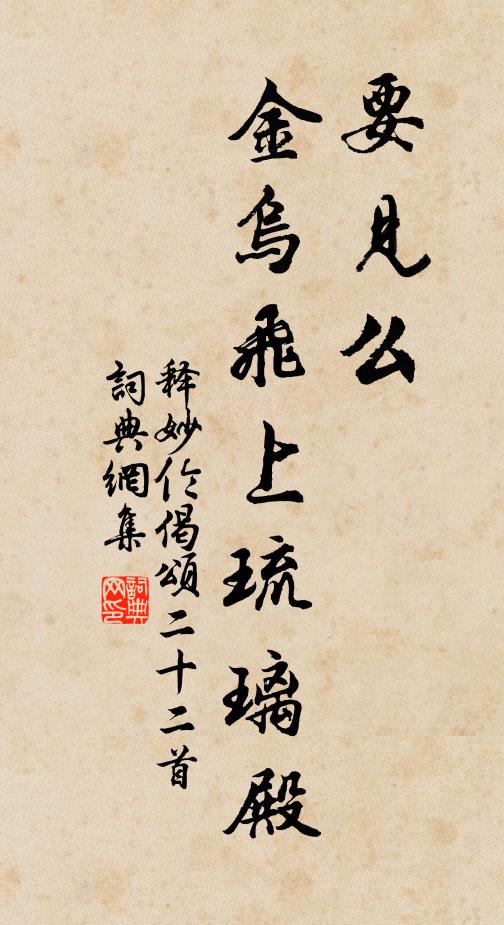 要見么
金烏飛上琉璃殿
释妙伦偈頌二十二首
詞典網集
詞典网印